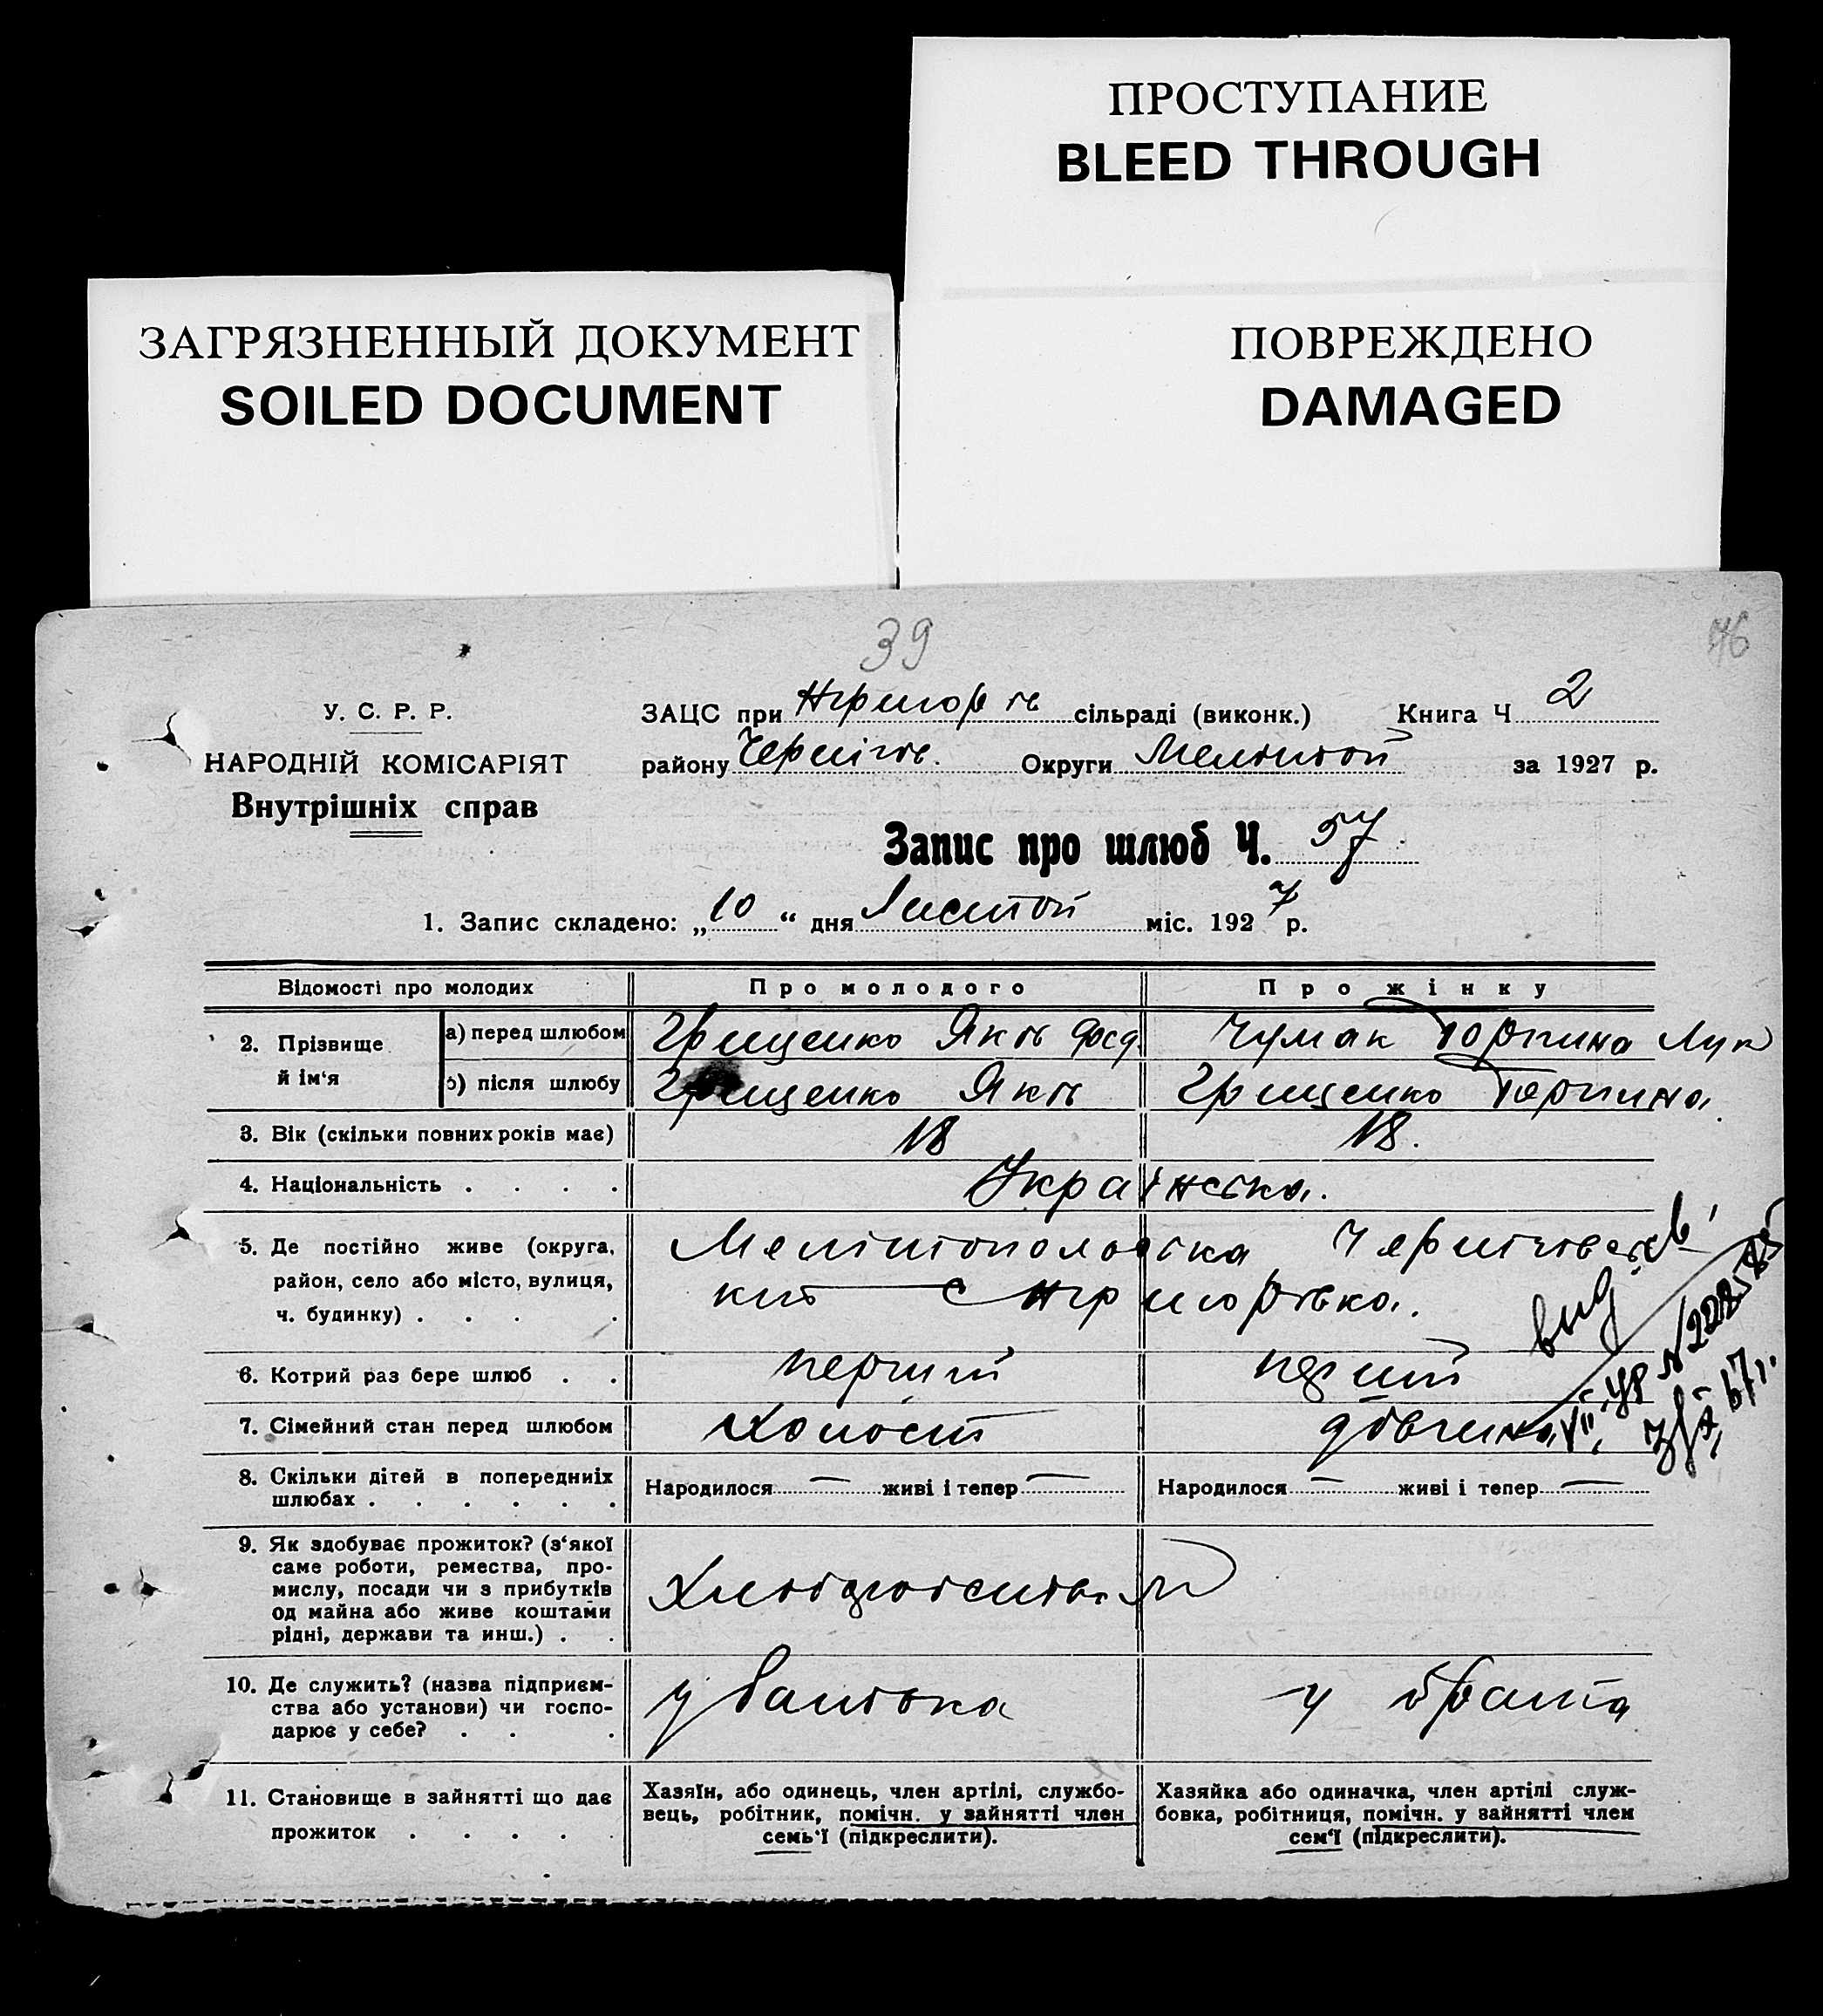 ПРОСТУПАНИЕ
BLEED THROUGH
ЗАГРЯЗНЕННЫЙ ДОКУМЕНТ
SOILED DOCUMENT
ПОВРЕЖДЕНО
DAMAGED
39
46
У. С. Р. Р.
НАРОДНІЙ КОМІСАРІЯТ
Внутрішніх справ
ЗАЦС при сільраді (виконк.) Книга Ч 2
району Черніговс. Округи Мелітоп за 1927 р.
Запис про шлюб Ч. 57
1. Запис складено: „10“ дня Листоп міс. 1927 р.
Відомості про молодих Про молодого Про жінку
2. Прізвище й ім‘я
а) перед шлюбом Грищенко Яків Фед. Чумак Горпина Лук
б) після шлюбу Грищенко Яків Грищенко Горпина.
3. Вік (скільки повних років має) 18 18.
4. Національність . . . . Українська.
5. Де постійно живе (округа,
район, село або місто, вулиця,
ч. будинку) . . . .
Мелітопольська
6. Котрий раз бере шлюб . . перший перший
7. Сімейний стан перед шлюбом Холост дівчина
8. Скільки дітей в попередниіх
шлюбах . . . . . .
Народилося — живі і тепер — Народилося — живі і тепер —
9. Як здобуває прожиток? (з‘якої
саме роботи, ремества, про-
мислу, посади чи з прибутків
од майна або живе коштами
рідні, держави та инш.) . .
10. Де служить? (назва підприєм-
ства або установи) чи госпо-
дарює у себе? . . .
у батька у брата
11. Становище в зайнятті що дає
прожиток . . . . .
Хазяїн, або одинець, член артілі, службо-
вець, робітник, помічн. у зайнятті член
семь‘ї (підкреслити).
Хазяйка або одиначка, член артілі служ-
бовка, робітниця, помічн. у зайнятті член
сем‘ї (підкреслити).